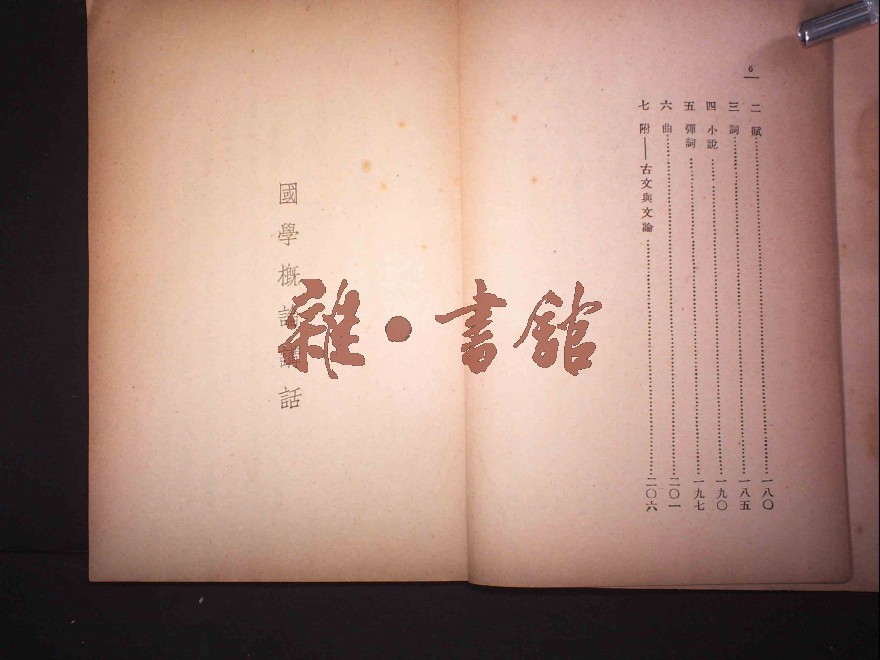 6
二 賦 一八〇
三 詞 一八五
四 小說 一九〇
五 彈詞 一九七
六 曲 二〇一
七 附——古文與文論 二〇六
國學概論講話
雜·書館